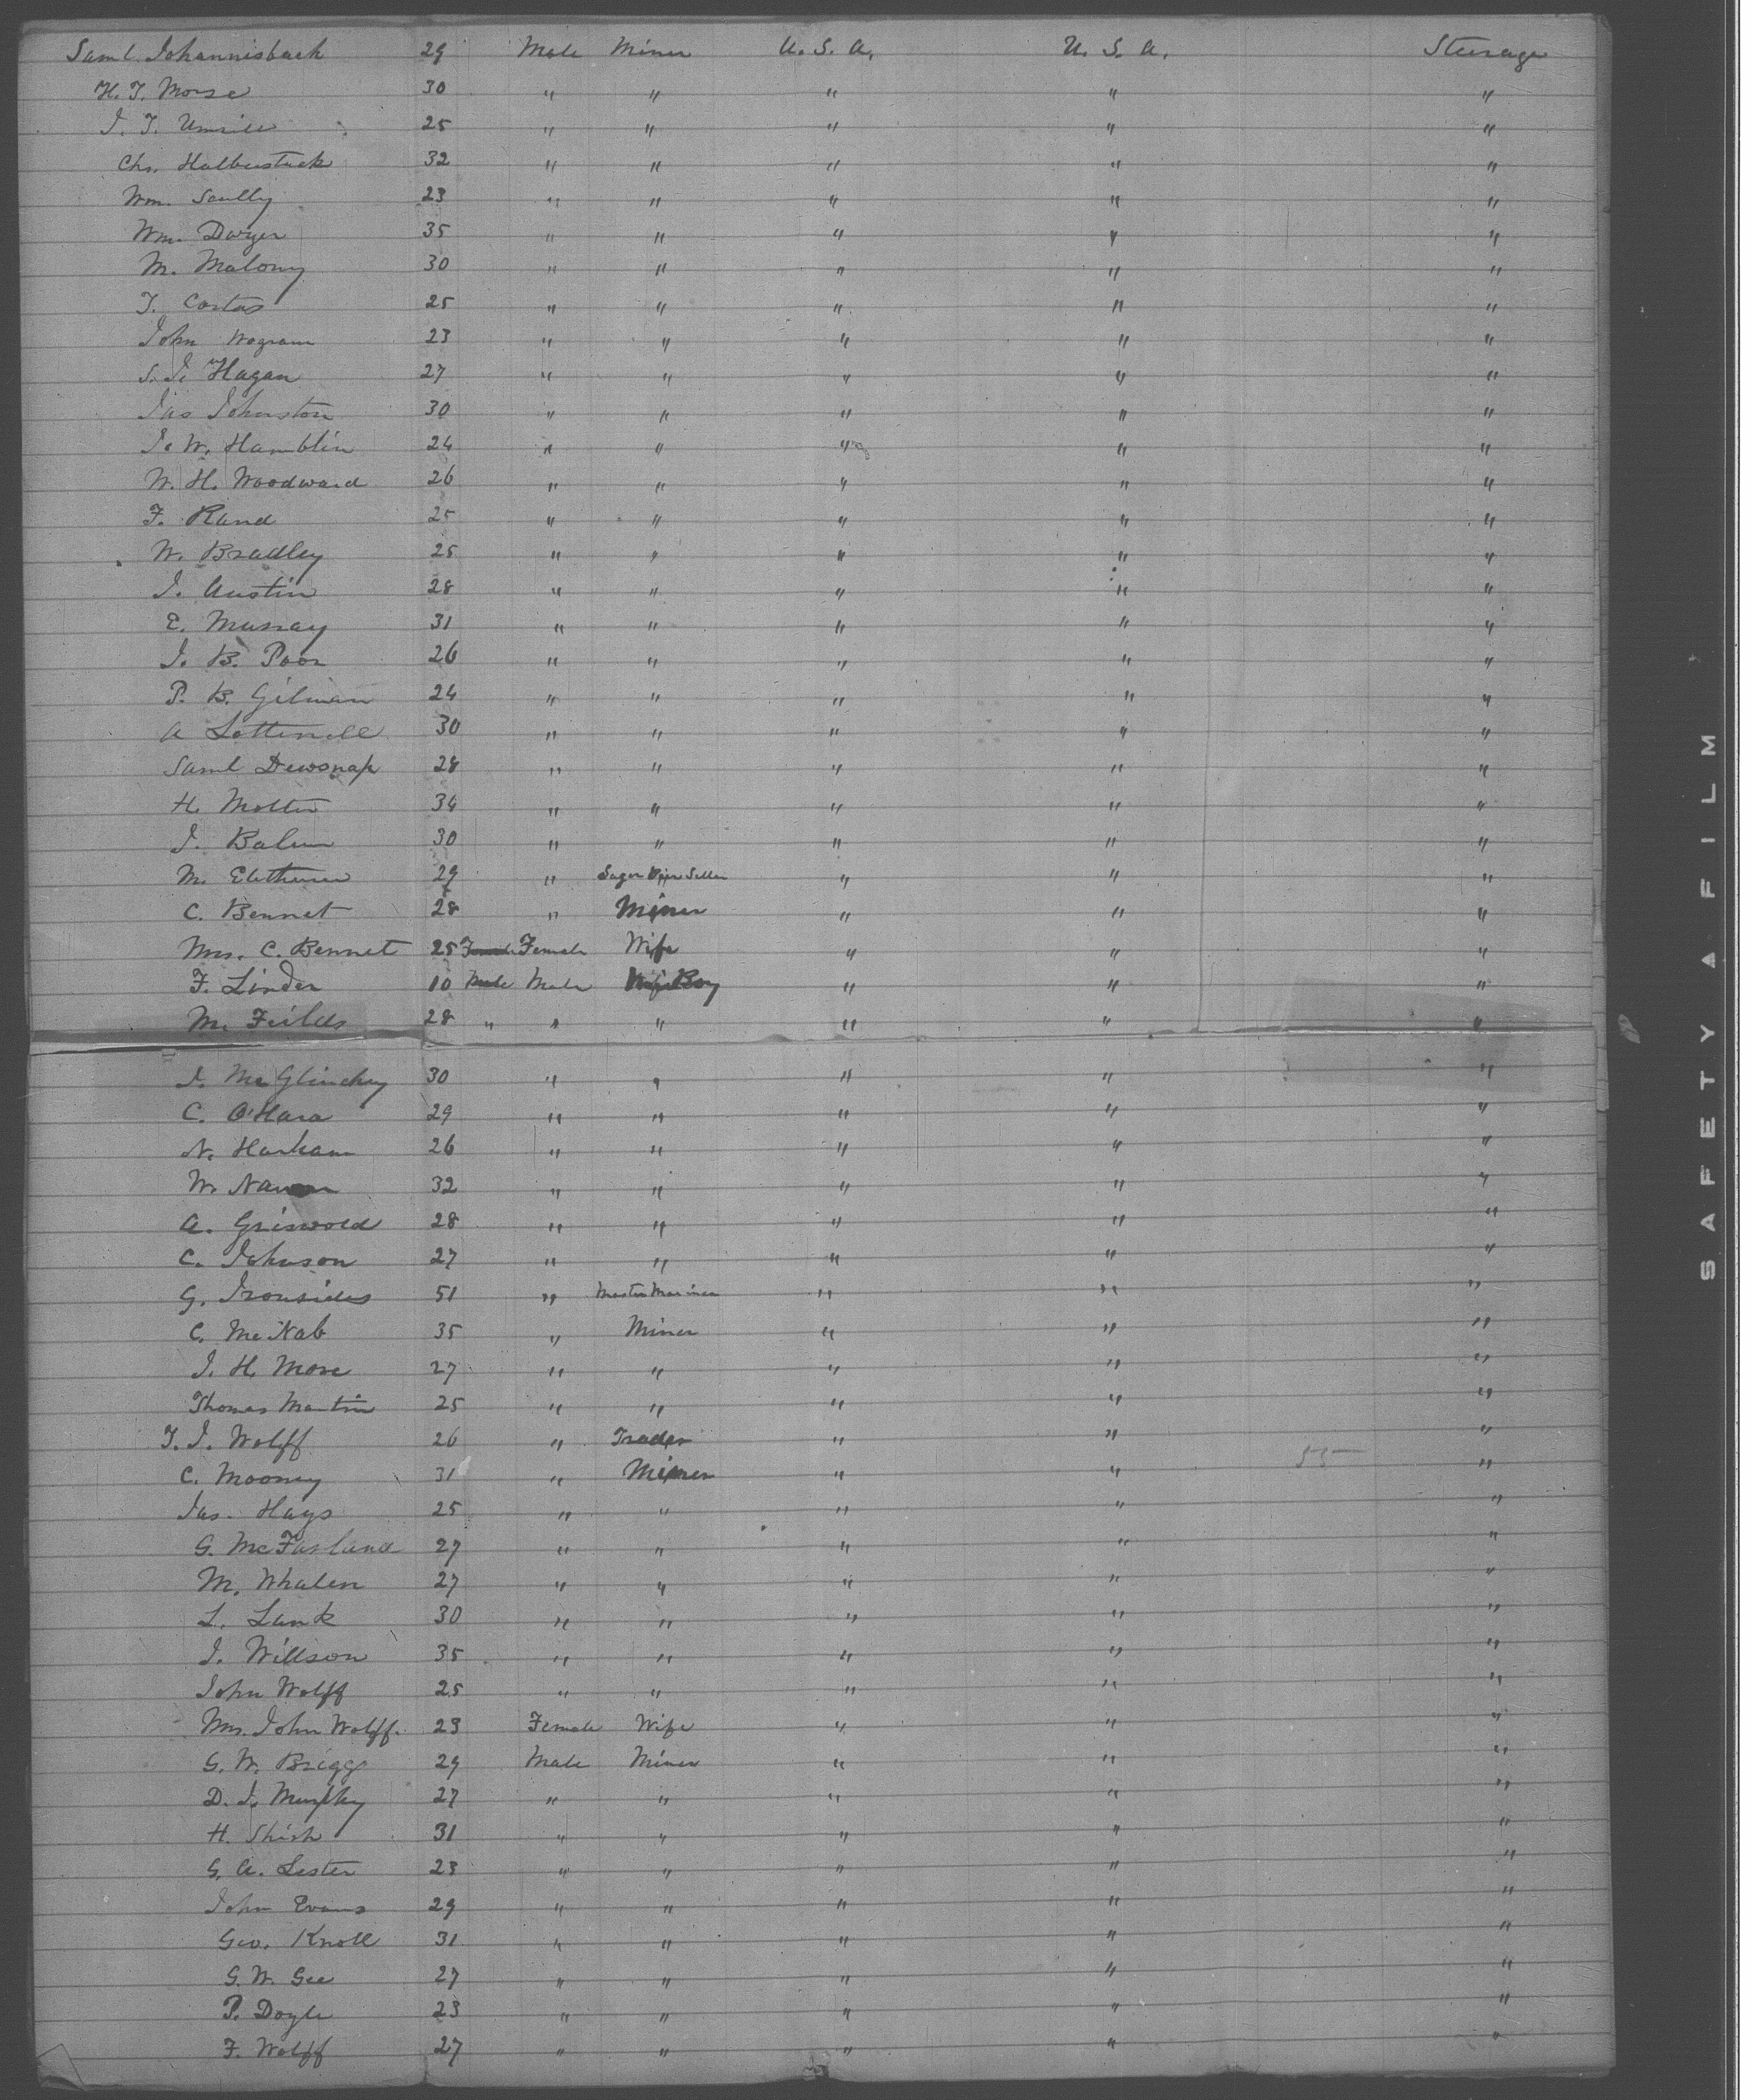 Saml. Johannisbach 29 Male Miner U. S. A. U. S. A. Steerage
H. T. Morse 30 " " " " "
J. T. 25 " " " " "
Chs. 32 " " " " "
Wm. Scully 23 " " " " "
Wm. Dwyer 35 " " " " "
M. Malony 30 " " " " "
T. Costas 25 " " " " "
John Wogram 23 " " " " "
S. J. Hagan 27 " " " " "
Jas Johnston 30 " " " " "
J. W. Hamblin 24 " " " " "
W. H. Woodward 26 " " " " "
F. Rand 25 " " " " "
W. Bradley 25 " " " " "
J. Austin 28 " " " " "
E. Murray 31 " " " " "
J. B. Poor 26 " " " " "
P. B. Gilman 24 " " " " "
A 30 " " " " "
Saml Dewsnap 28 " " " " "
H. Molter 34 " " " " "
J. 30 " " " " "
M. 29 " " " "
C. Bennet 28 " Miner " " "
Mrs. C. Bennet 25 Female Female Wife " " "
F. Linder 10 Male Male Boy " " "
M. Feilds 28 " " " " " "
J. McGlinchey 30 " " " " "
C. O'Hara 29 " " " " "
N. Harham 26 " " " " "
W. 32 " " " " "
A. Griswold 28 " " " " "
C. Johnson 27 " " " " "
G. Ironsides 51 " Master Mariner " " "
C. McNab 35 " Miner " " "
J. H. More 27 " " " " "
Thomas Martin 25 " " " " "
T. J. Wolff 26 " Trader " " "
C. Mooney 31 " Miner " " 55 "
Jas. Hays 25 " " " " "
G. McFarland 27 " " " " "
M. Whalen 27 " " " " "
L. Lunk 30 " " " " "
J. Willson 35 " " " " "
John Wolff 25 " " " " "
Mrs. John Wolff. 23 Female Wife " " "
G. W. Briggs 29 Male Miner " " "
D. J. Murphy 27 " " " " "
H. Shish 31 " " " " "
G. A. Lester 23 " " " " "
John Evans 29 " " " " "
Geo. Knoll 31 " " " " "
G. W. Gee 27 " " " " "
P. Doyle 23 " " " " "
F. Wolff 27 " " " " "
SAFETY A FILM